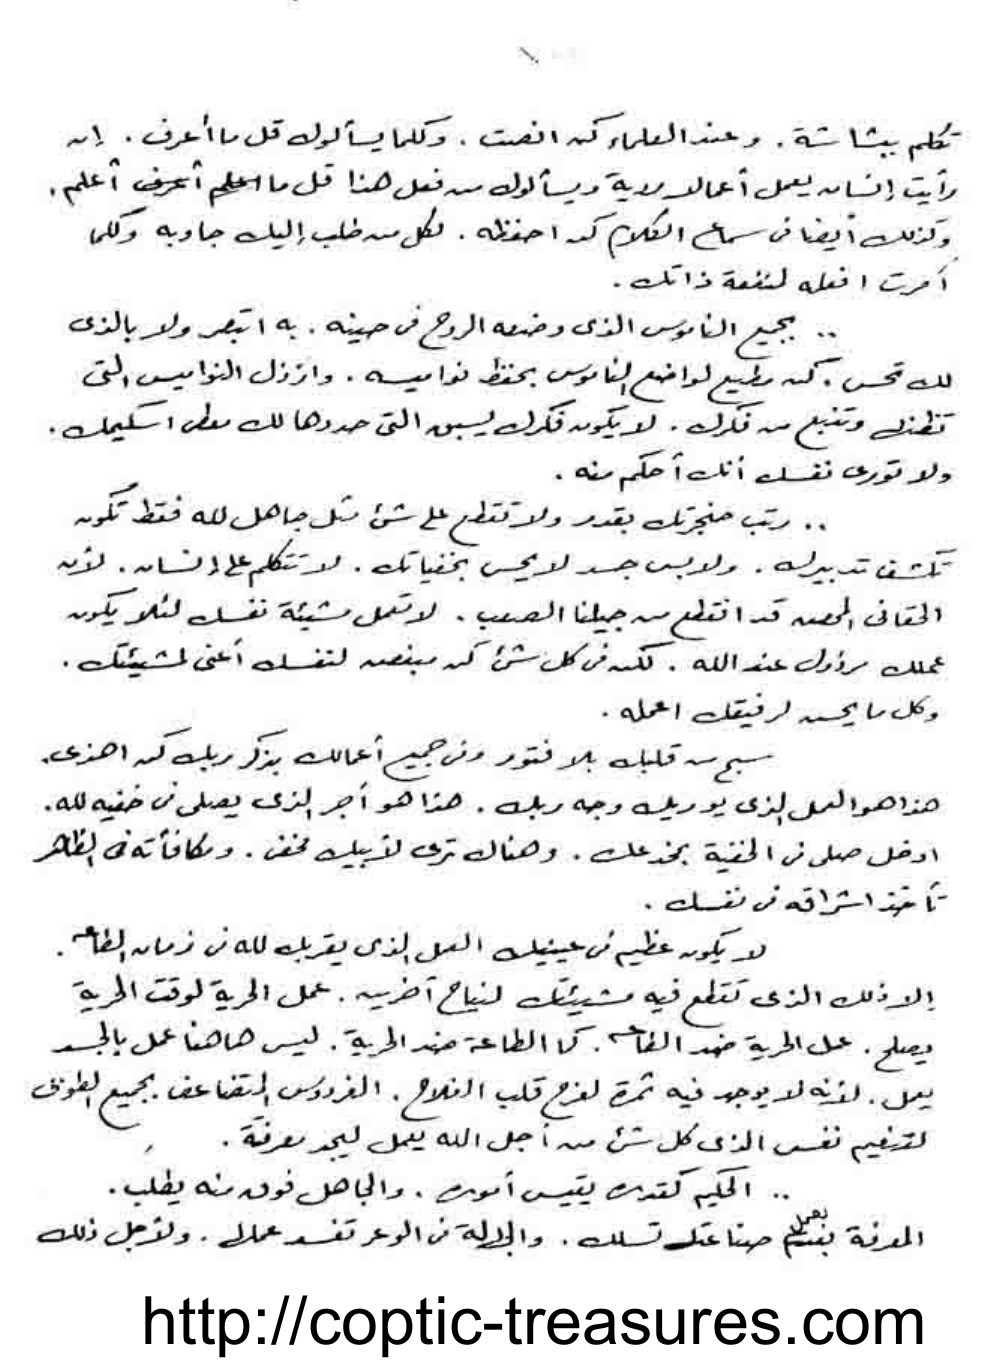 تكلم ببشاشة . وعند العلماء كن انصت . وكلما يسألوك قل ما أعرف . إن
رأيت إنسان يعمل أعمال ردية ويسألوك من فعل هذا قل ما أعلم .
وكذلك أيضا فى سماع الكلام كن احفظه . لكل من طلب إليك جاوبه وكلما
أمرت افعله لمنفعة ذاتك .
.. بجميع الناموس الذى وضعه الروح فى حينه . به ابتصر ولا بالذى
لك تحس . كن مطيع لواضع الناموس بحفظ نواميسه . وارذل النواميس التى
تظنك وتنبع من فكرك . لا يكون فكرك يسبق التى حددها لك معطى اسكيمك .
ولا تورى نفسك أنك أحكم منه .
.. رتب حنجرتك بقدر ولا تقطع على شئ مثل جاهل لله فقط تكون
تكشف تدبيرك . ولابس جسد لا يحس بخفياتك . لا تتكلم على إنسان . لأن
الحقانى المحصن قد انقطع من جيلنا الصعب . لا تعمل مشيئة نفسك لئلا يكون
عملك مرذول عند الله . لكن فى كل شئ كن مبغض لنفسك أعنى لمشيئتك .
وكل ما يحسن لرفيقك اعمله .
سبح من قلبك بلا فتور وفى جميع أعمالك بذكر ربك كن اهذى .
هذا هو العمل الذى يوريك وجه ربك . هذا هو أجر الذى يصلى فى خفيه لله .
ادخل صلى فى الخفية بخدعك . وهناك ترى لأبيك مخفى . ومكافأته فى الظاهر
تأخذ اشراقه فى نفسك .
لا يكون عظيم فى عينيك العمل الذى يقربك لله فى زمان الطاعة .
إلا ذلك الذى تقطع فيه مشيئتك لنياح آخرين . عمل الحرية لوقت الحرية
يصلح . عمل الحرية ضد الطاعة . كما الطاعة ضد الحرية . ليس هاهنا عمل بالجسد
يعمل . لأنه لا يوجد فيه ثمرة لفرح قلب الفلاح . الفردوس المتضاعف بجميع الطوبى
لتنعيم نفس الذى كل شئ من أجل الله يعمل ليجد معرفة .
.. الحكيم كقدره يقيس أموره . والجاهل فوق منه يطلب .
المعرفة بعمل صناعتك تسلك . والجلالة فى الوعر تفسد عمالك . ولأجل ذلك
http://coptic-treasures.com